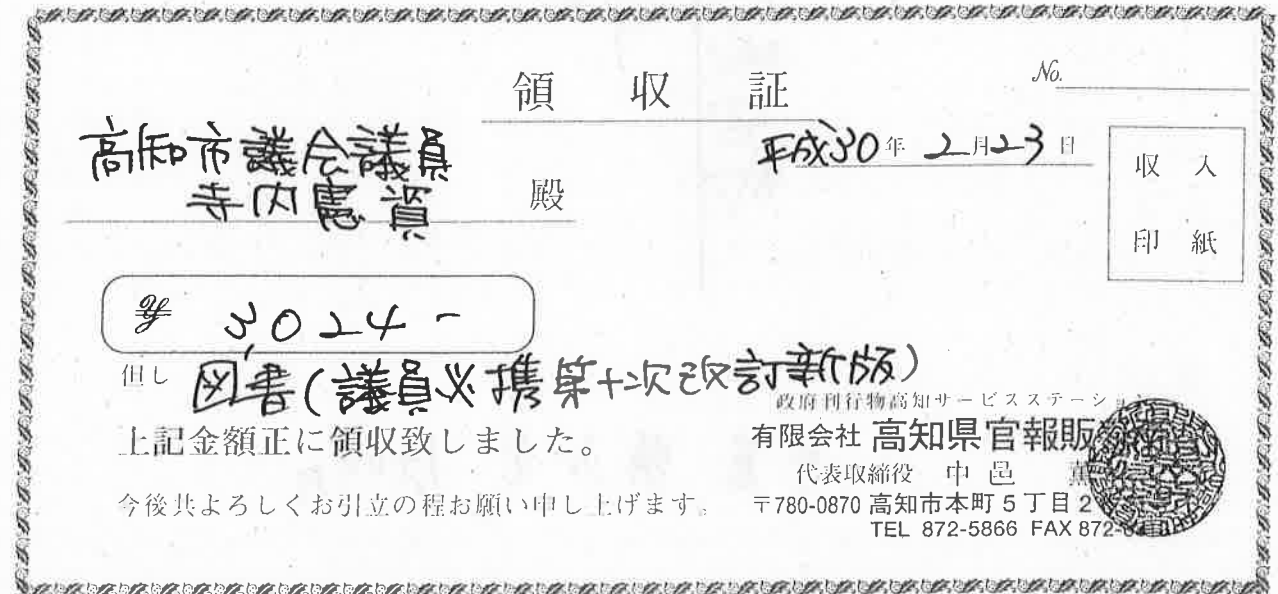 領収証
No.
平成30年2月23日
高知市議会議員
寺内憲資 殿
収入
印紙
¥ 3,024-
但し 図書(議員必携第十次改訂新版)
上記金額正に領収致しました。
今後共よろしくお引立の程お願い申し上げます。
政府刊行物高知サービスステーション
有限会社 高知県官報販
代表取締役 中邑 薫
〒780-0870 高知市本町5丁目2
TEL 872-5866 FAX 872-